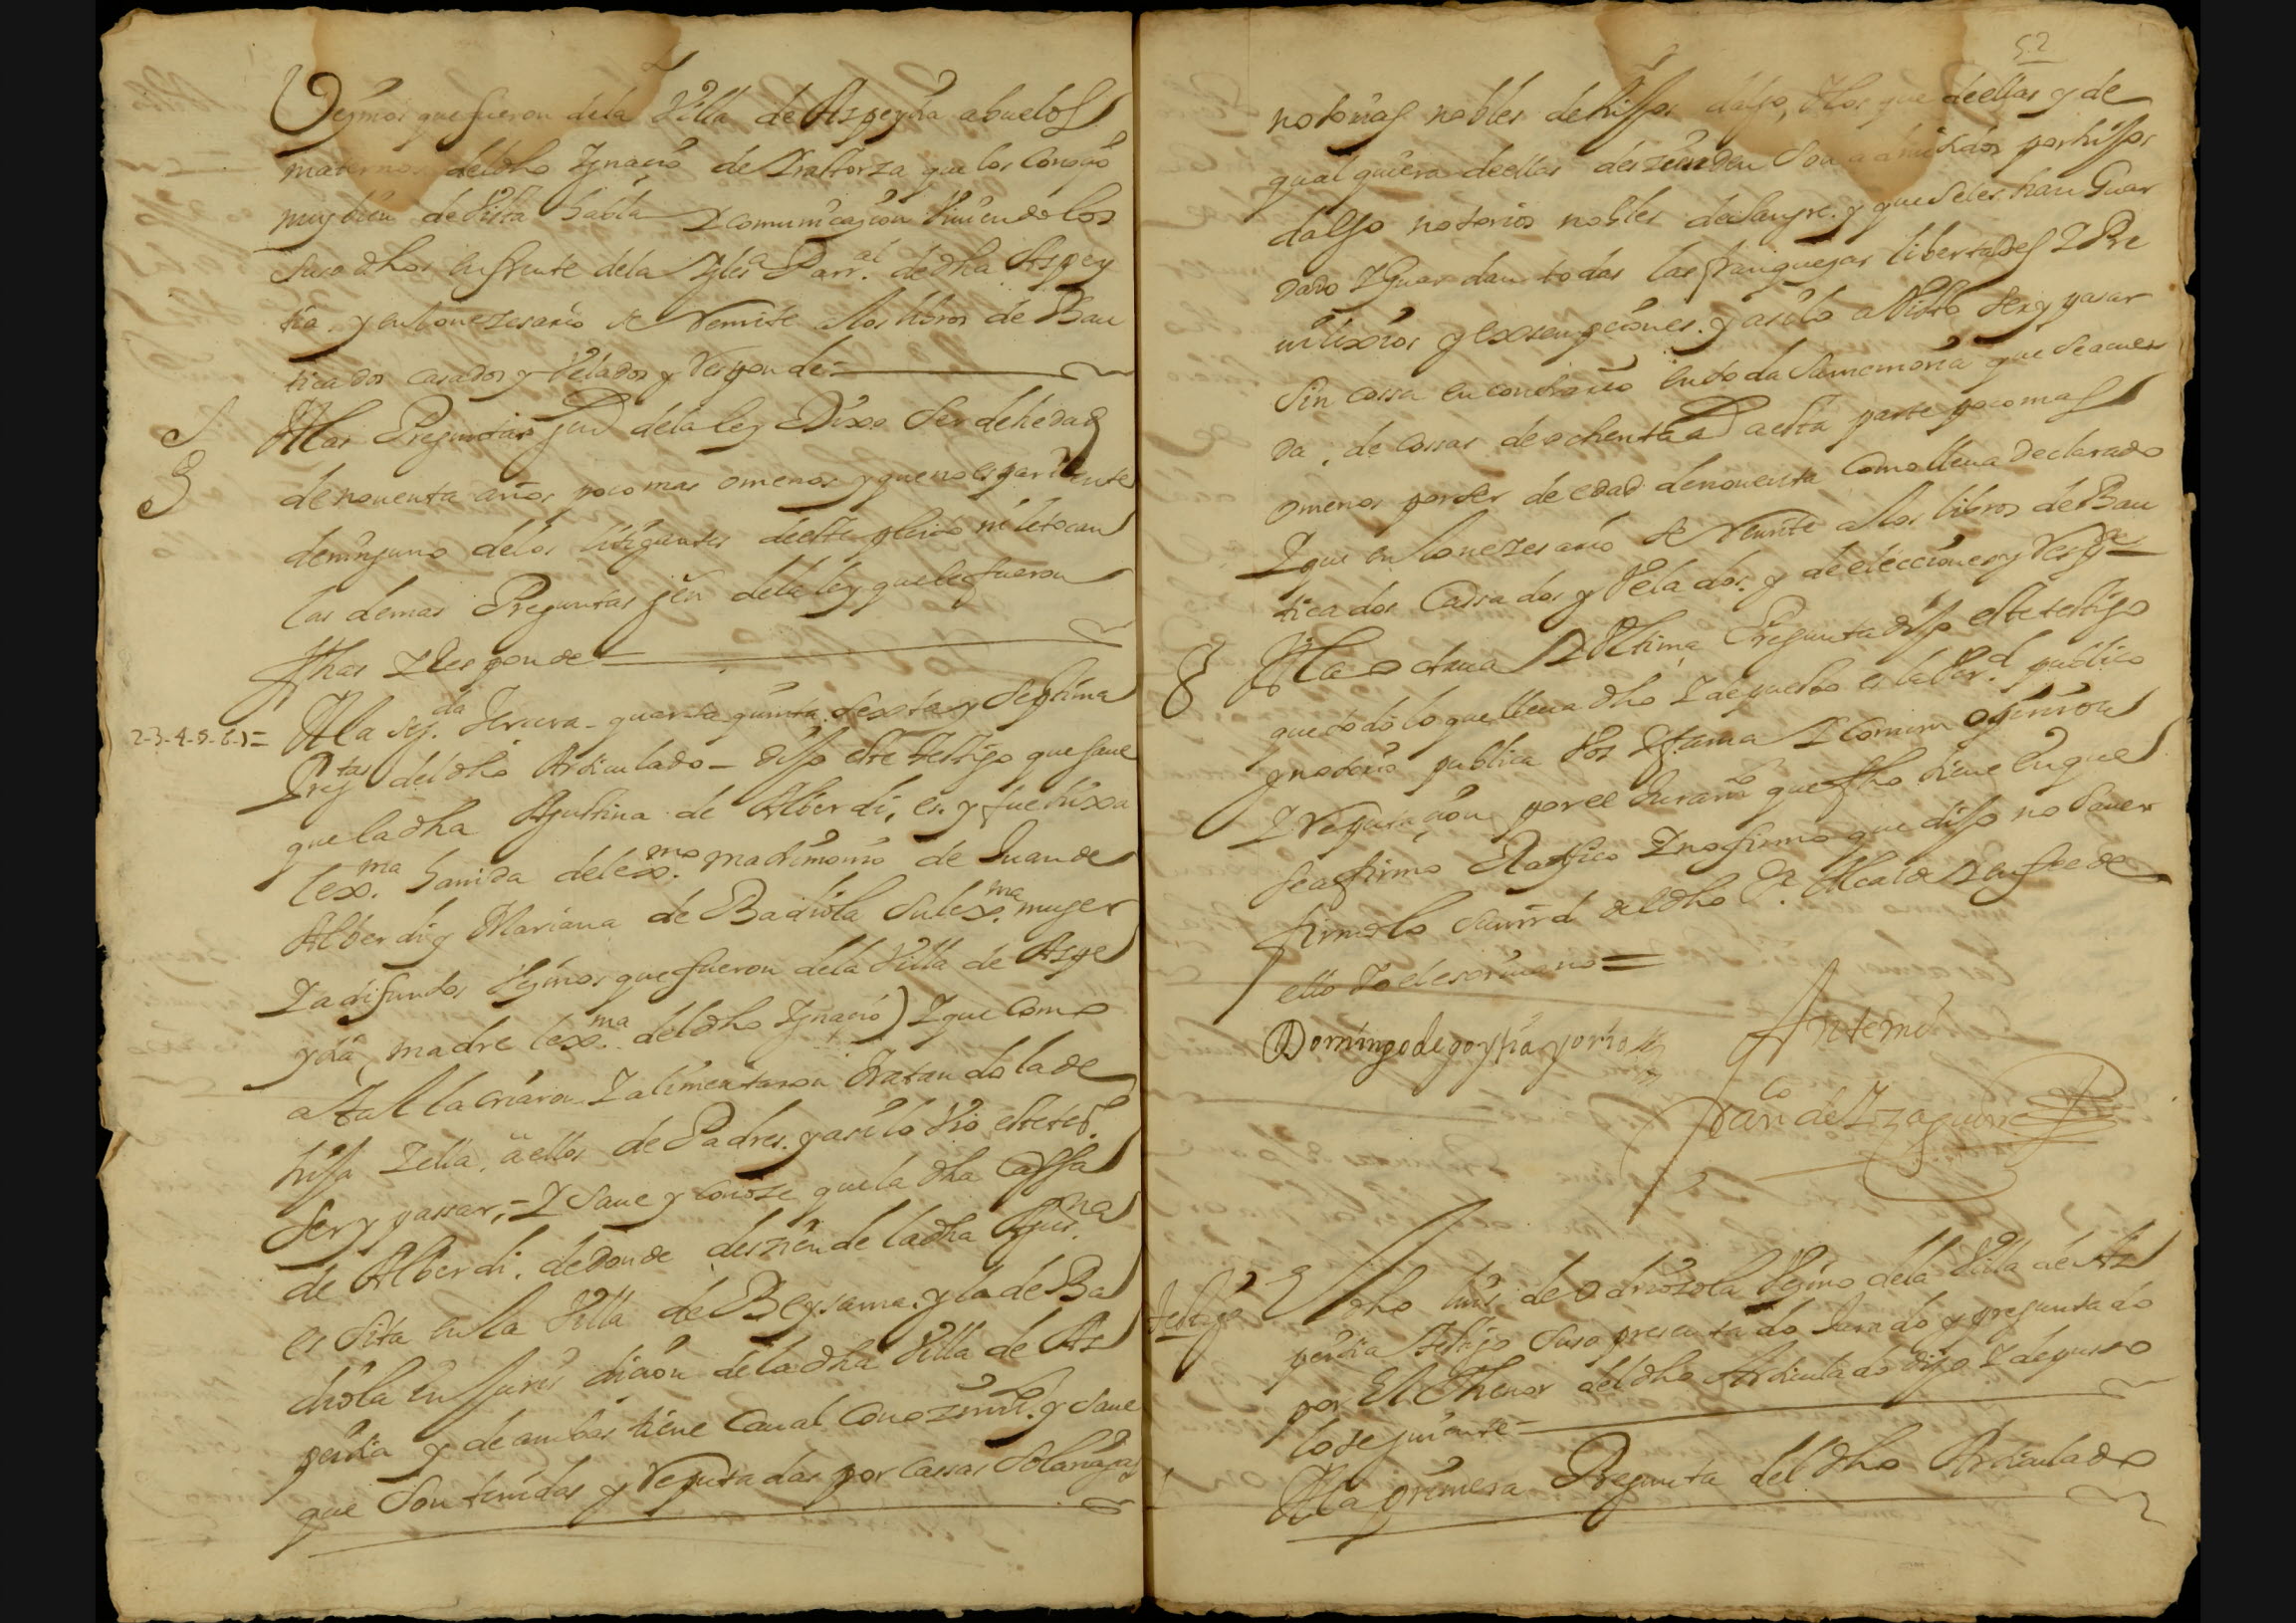 Vezinos que fueron de la Villa de Aspeytia abuelos
maternos del dho Ygnacio de Yraltorza que los Conoçio
muy bien de Vista habla y comunicaçion Viuiendo los
suso dhos enfrente de la Ygleª Parr.al de dha Aspey
tia y en lo nezesario se Remite a los libros de Bau
ticados casados y Velados y Responde =
A las Preguntas gen de la ley Dixo Ser de hedad
de nouenta años poco mas o menos y que no es pariente
de ninguno de los litigantes de este pleito ni le tocan
las demas Preguntas gen de la ley que le fueron
fhas y Responde =
2-3-4-5-6-7= A la seg.da terzera quarta quinta sexta y septima
Preg.tas del dho Articulado - dijo este testigo que saue
que la dha Agustina de Alberdi, es y fue hixa
lex.ma hauida de lex.mo matrimonio de Juan de
Alberdi y Mariana de Badiola su lex.ma muger
ya difuntos Vezinos que fueron de la Villa de Aspe
ytia, madre lex.ma del dho Ygnaçio) y que como
a tal la criaron y alimentaron tratandola de
hija y ella, a ellos de Padres. y asi lo vio este test.o
ser y passar, = y saue y conoze que la dha Cassa
de Alberdi. de donde desziende la dha Agus.na
es sita en la Villa de Beysama. y la de Ba
diola en jurisdicion de la dha Villa de As
peitia y de ambas tiene caual conozimi.to y saue
que son tenidas y Reputadas por cassas solariegas
52
notorias nobles de hijos dalgo, y los que de ellas y de
qualquiera de ellas deszienden son admitidos por hijos
dalgo notorios nobles de sangre. y que se les han Guar
dado y Guardan todas las franquezas libertades y Pre
uilixios y exsempciones. y asi lo a Visto ser y pasar
sin cossa en contrario en toda su memoria que se acuer
da, de cossas de ochenta a.s a esta parte poco mas
o menos por ser de edad de nouenta como lleua declarado
y que en lo nezesario se Remite a los libros de Bau
ticados Cassados y Velados, y de elecciones y Resp.de
8 A la octaua y Vltima Pregunta dijo este testigo
que todo lo que lleua dho y depuesto es la Ver.d publico
y notorio publica Voz y fama y comun opinion
y Reputaçion por el Juram.to que fho tiene en que
se afirmo Ratifico y no firmo que dijo no sauer
firmolo su mrd del dho S.r Alcalde y en fee de
ello Yo el escriuano =
Domingo de goytia y orio
Ante mi
Fran.co de Yzaguirre
Testigo El dho luis de Odriozola Vezino de la Villa de As
peitia testigo suso presentado Jurado y preguntado
por El Thenor del dho Articulado dijo y depusso
lo seguiente =
1 A la primera Pregunta del dho Articulado